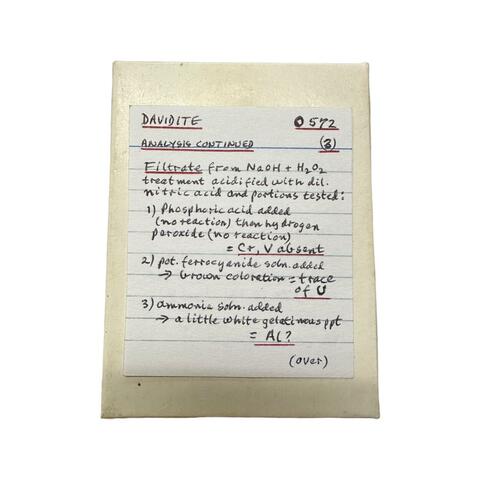 DAVIDITE O 572
ANALYSIS CONTINUED (3)
Filtrate from NaOH + H2O2
treatment acidified with dil.
nitric acid and portions tested:
1) Phosphoric acid added
(no reaction) then hydrogen
peroxide (no reaction)
= Cr, V absent
2) pot. ferrocyanide soln. added
→ brown coloration = trace
of U
3) ammonia soln. added
→ a little white gelatinous ppt
= Al?
(over)